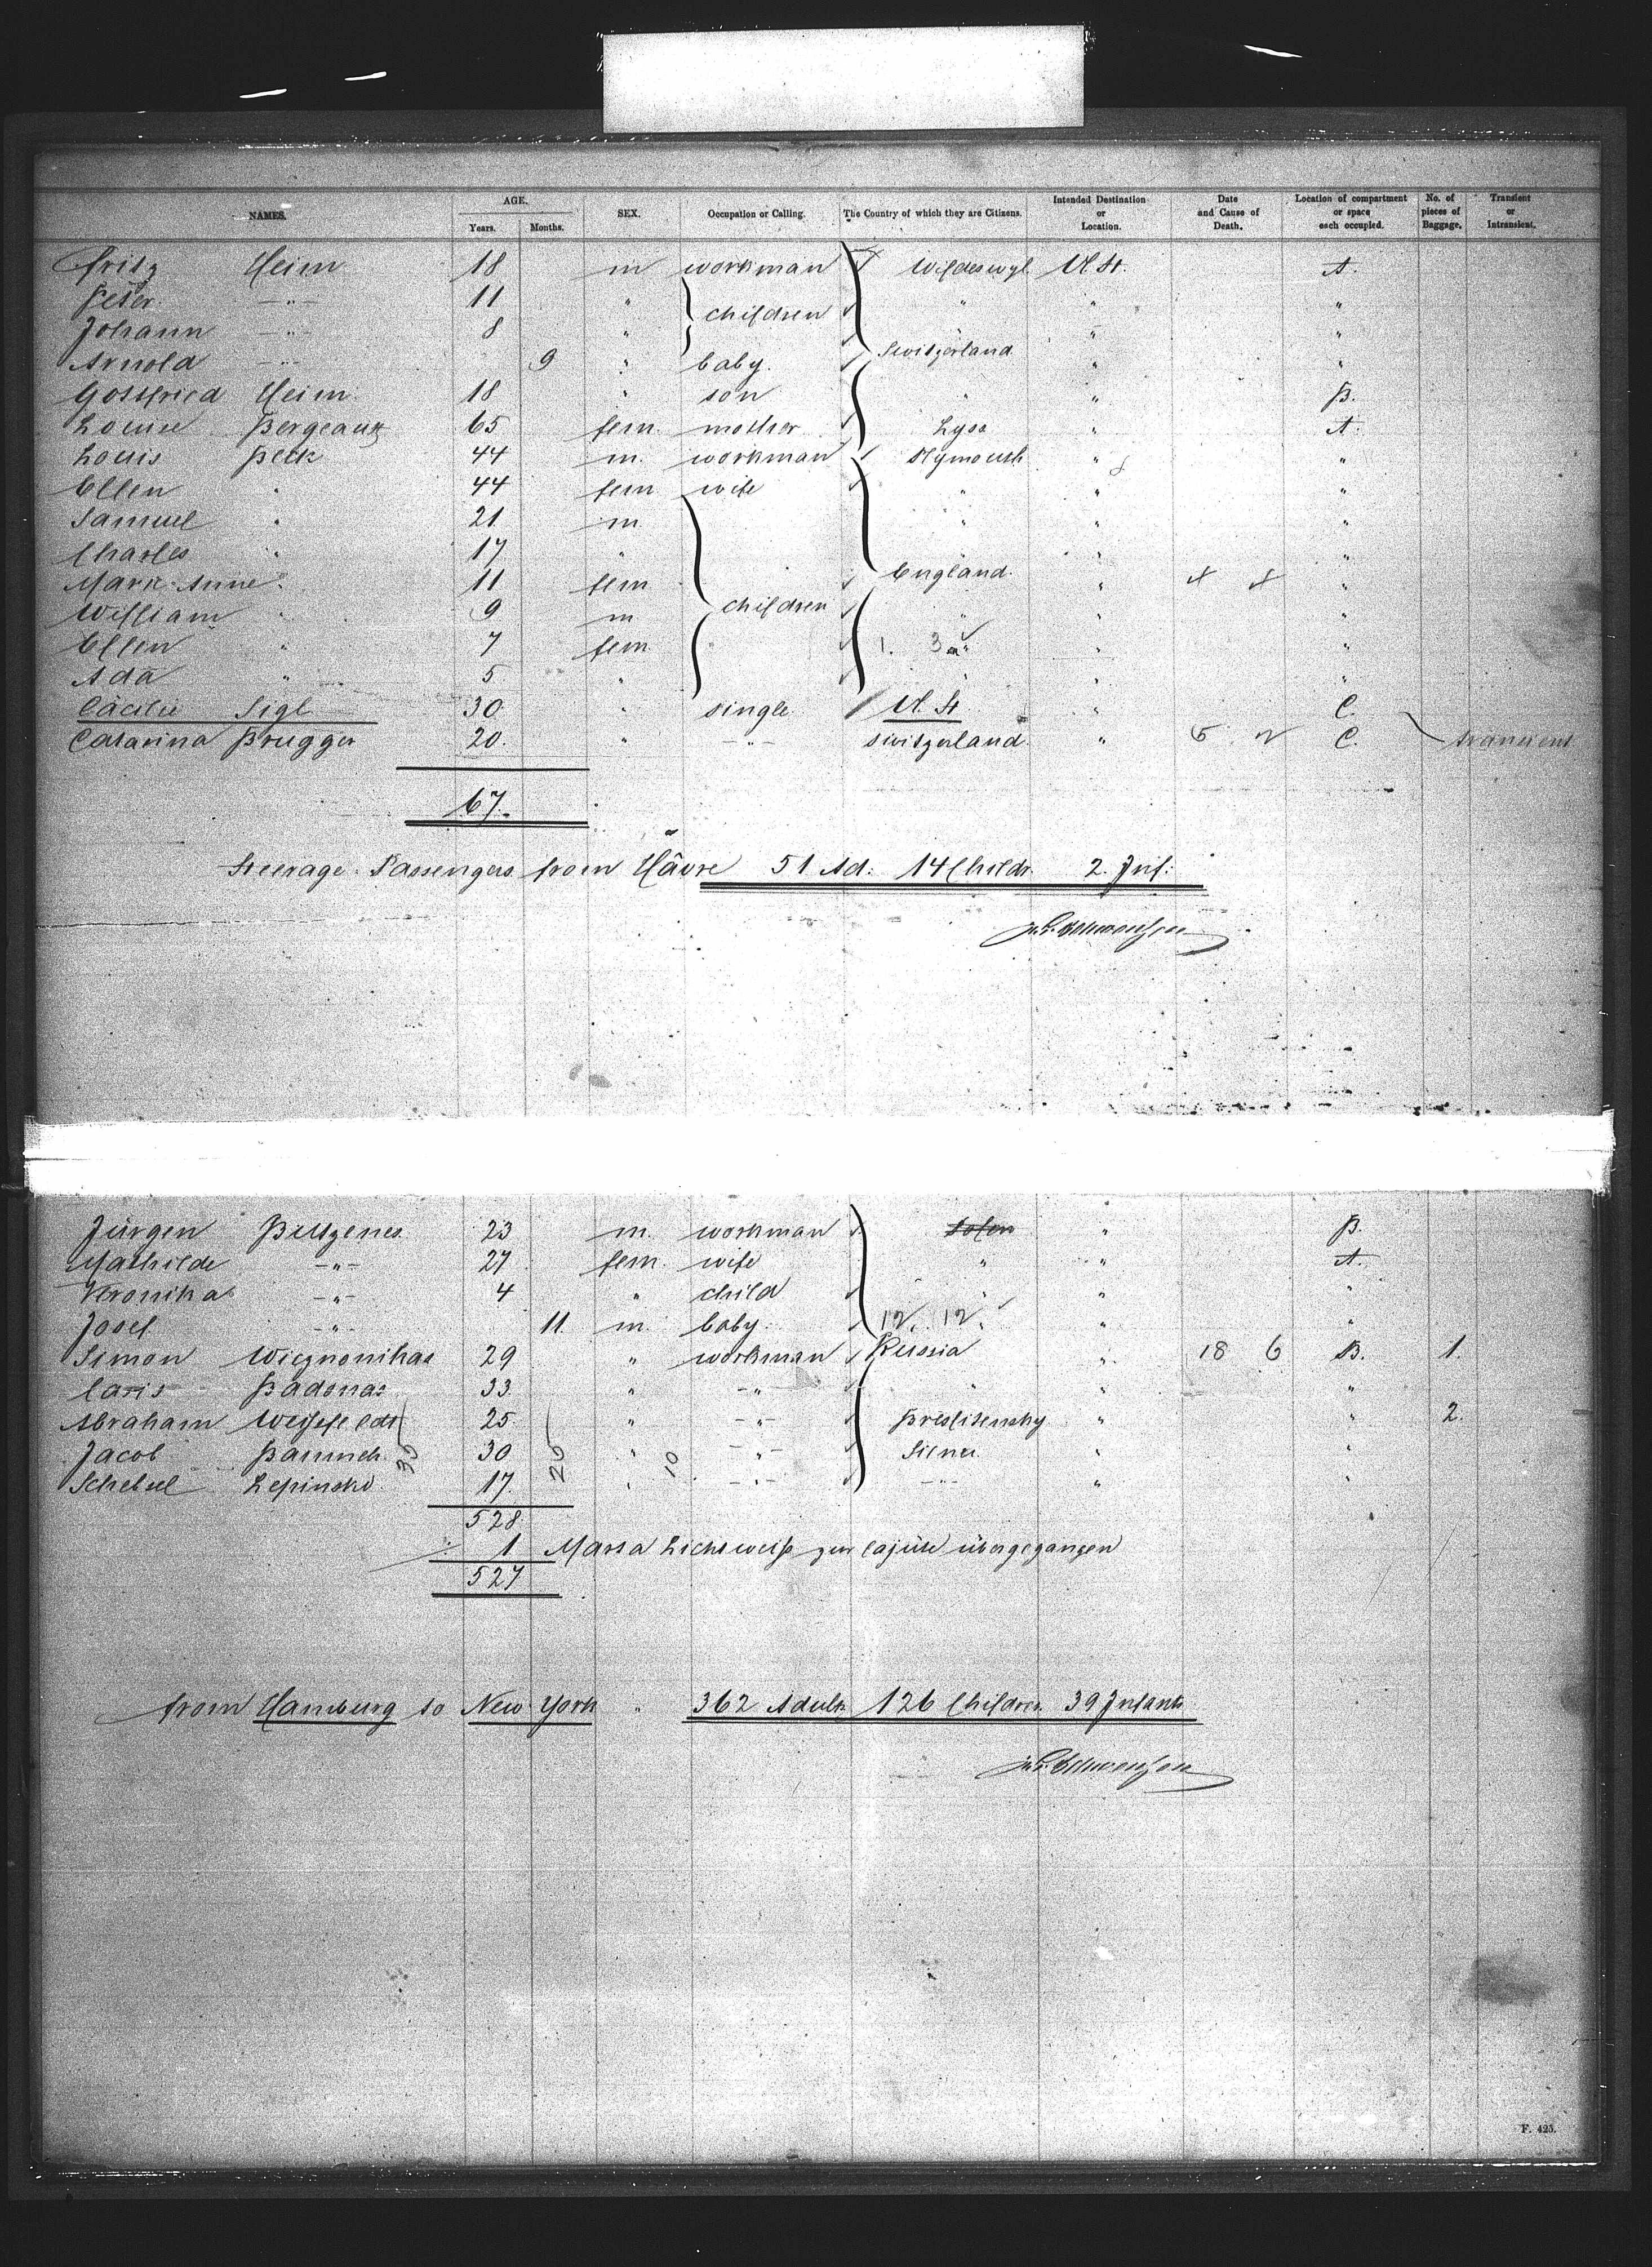 NAMES. AGE. SEX. Occupation or Calling. The Country of which they are Citizens. Intended Destination or Location. Date and Cause of Death. Location of compartment or space each occupied. No. of pieces of Baggage. Transient or Intransient.
Years. Months.
Fritz Heim 18 m workman Wildeswyl U. St. A.
Peter " 11 " children " " "
Johann " 8 " " "
Arnold " 9 " baby. Switzerland " "
Gottfried Heim 18 " son " " B.
Louise 65 fem. mother Lyss " A.
Louis Peck 44 m. workman Plymouth " "
Ellen " 44 fem wife " " "
Samuel " 21 m " " "
Charles " 17 " " "
Mark-Anne " 11 fem England " "
William " 9 m children " " "
Ellen " 7 fem 1. 3 " "
Ada " 5 " " " "
Cäcilie Sigl 30 " single U. St " C.
Catarina Brugger 20. " -"- Switzerland " 5 C. transient
67.
Steerage Passengers from Hâvre 51 Ad. 14 Childr. 2. Inf:
Jürgen 23 m. workman " B.
Mathilde -"- 27 fem. wife " " A.
Veronika -"- 4 " child " " "
Josef -"- 11 m. baby. 12. 12. " "
Simon 29 " workman Russia " 18 6 B. 1.
33 " -"- " " "
Abraham 25 " -"- " " 2.
Jacob 30 " -"- " "
Lepinski 17 " -"- -"- " "
30 20 10
528
1 Marta Lichtweiß zur Cajüte übergegangen
527
from Hamburg to New York " 362 Adults 126 Children 39 Infants
F. 425.